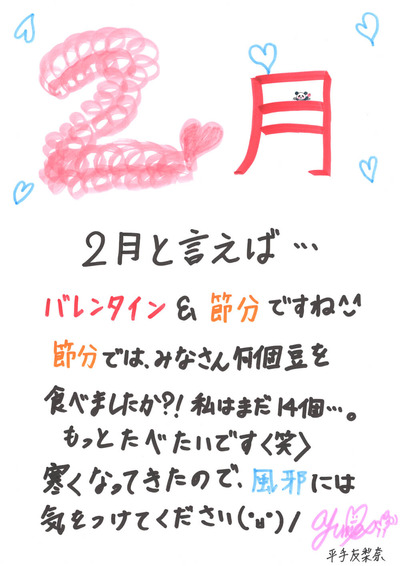 2月
2月と言えば…
バレンタイン&節分ですね^^
節分では、みなさん何個豆を
食べましたか?!私はまだ14個…。
もっとたべたいです<笑>
寒くなってきたので、風邪には
気をつけてください('ω')/
平手友梨奈